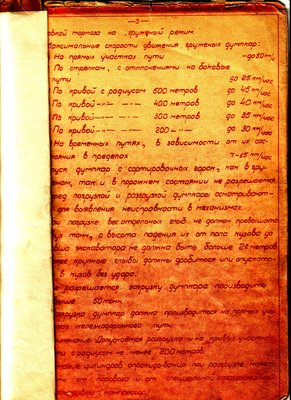 — 3 —
овкой тормоза на груженый режим
Максимальные скорости движения груженых думпкар:
На прямых участках пути — до 50 км/час
По стрелкам, с отклонениями на боковые
пути до 25 км/час
По кривой с радиусом 500 метров до 45 км/час
По кривой —"— —"— 400 метров до 40 км/час
По кривой —"— —"— 300 метров до 35 км/час
По кривой —"— —"— 200 —"— до 30 км/час
На временных путях, в зависимости от их сос-
тояния в пределах 7-15 км/час
уск думпкар с сортировочных горок, как в гру-
ном, так и в порожнем состоянии не разрешается
ред погрузкой и разгрузкой думпкары осматривают-
для выявления неисправности в механизмах
ри погрузке, вес отдельных глыб не должен превышать
ух тонн, а высота падения их от пола кузова до
вша экскаватора не должна быть больше 2х метров
лее крупные глыбы должны дробиться или опускать-
в кузов без удара.
е разрешается загрузку думпкара производить
выше 50 тонн
азгрузка думпкар должна производиться на прямых уча-
ках железнодорожного пути
имечание: Допускается разгрузка и на кривых участках
ти с радиусом не менее 200 метров.
итание цилиндров опрокидывания при разгрузке может
ть от паровоза и от специальной
компрессор